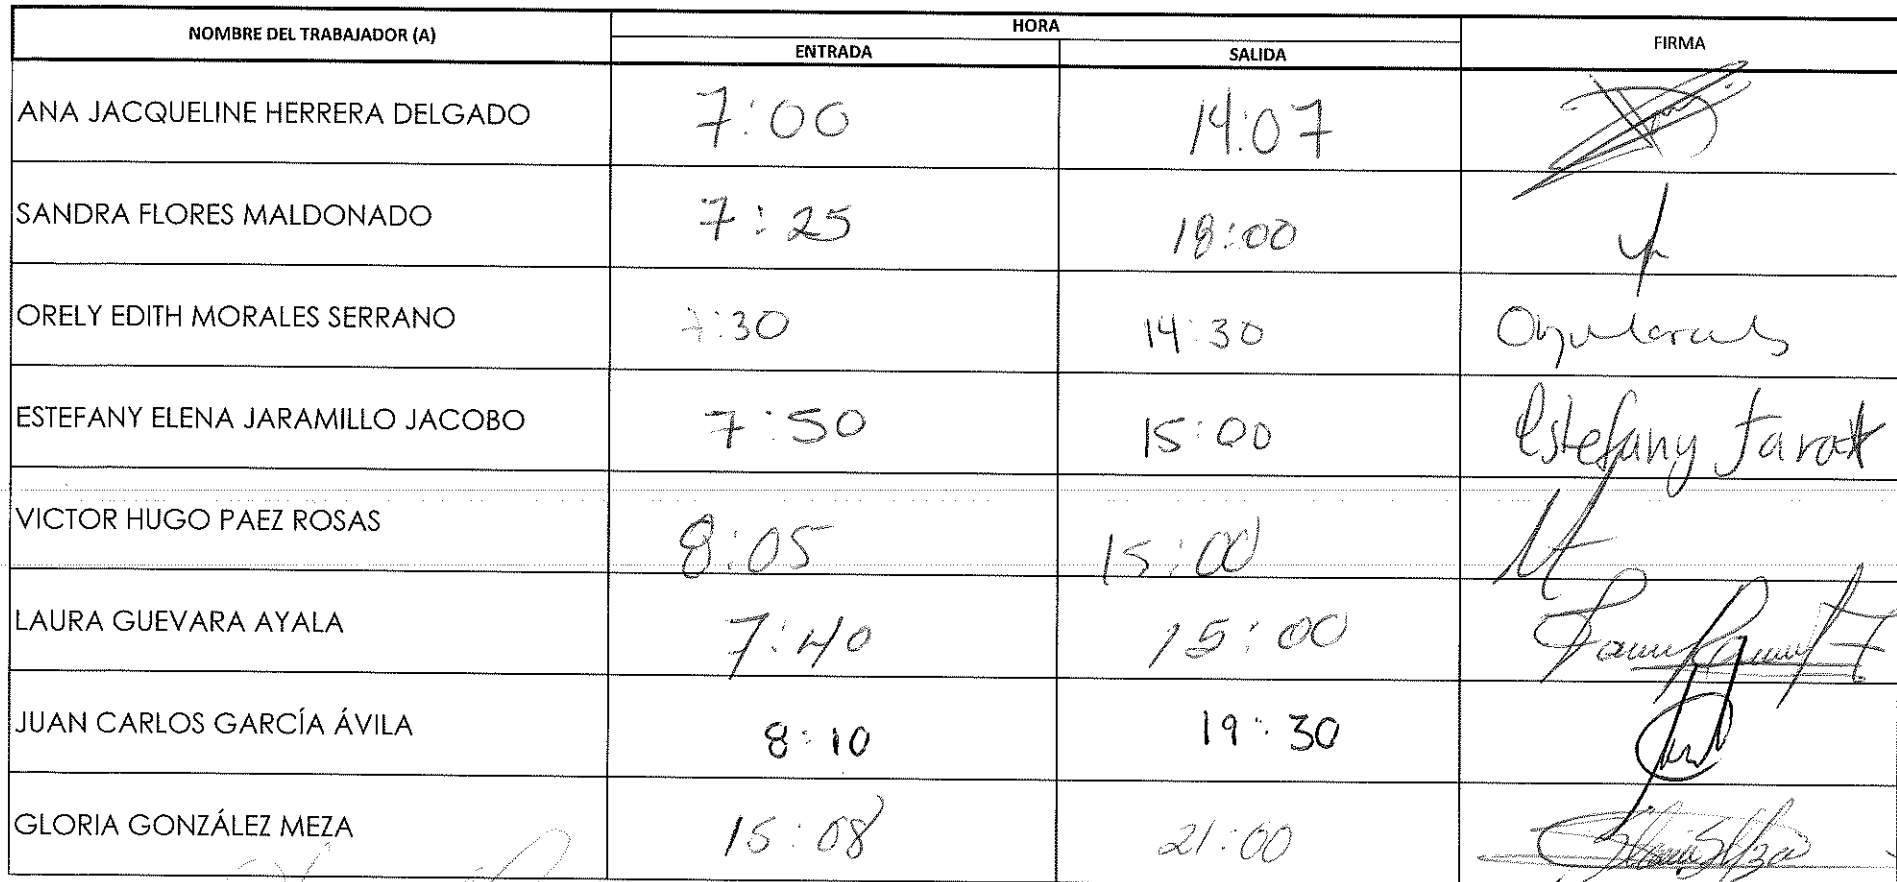 NOMBRE DEL TRABAJADOR (A) HORA FIRMA
ENTRADA SALIDA
ANA JACQUELINE HERRERA DELGADO 7:00 14:07
SANDRA FLORES MALDONADO 7:25 18:00
ORELY EDITH MORALES SERRANO 7:30 14:30
ESTEFANY ELENA JARAMILLO JACOBO 7:50 15:00 Estefany Jara
VICTOR HUGO PAEZ ROSAS 8:05 15:00
LAURA GUEVARA AYALA 7:40 15:00
JUAN CARLOS GARCÍA ÁVILA 8:10 19:30
GLORIA GONZÁLEZ MEZA 15:08 21:00